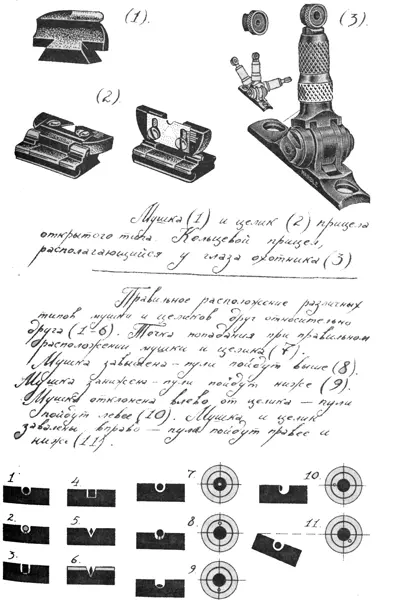 (1).
(3).
(2)
Мушка (1) и целик (2) прицела
открытого типа. Кольцевой прицел,
располагающийся у глаза охотника (3)
Правильное расположение различных
типов мушки и целиков друг относительно
друга (1-6). Точка попадания при правильном
расположении мушки и целика (7).
Мушка завышена - пули пойдут выше (8).
Мушка занижена - пули пойдут ниже (9).
Мушка отклонена влево от целика - пули
пойдут левее (10). Мушка и целик
завалены вправо - пули пойдут правее и
ниже (11).
1. 4 7. 10.
2. 5. 8. 11.
3. 6. 9